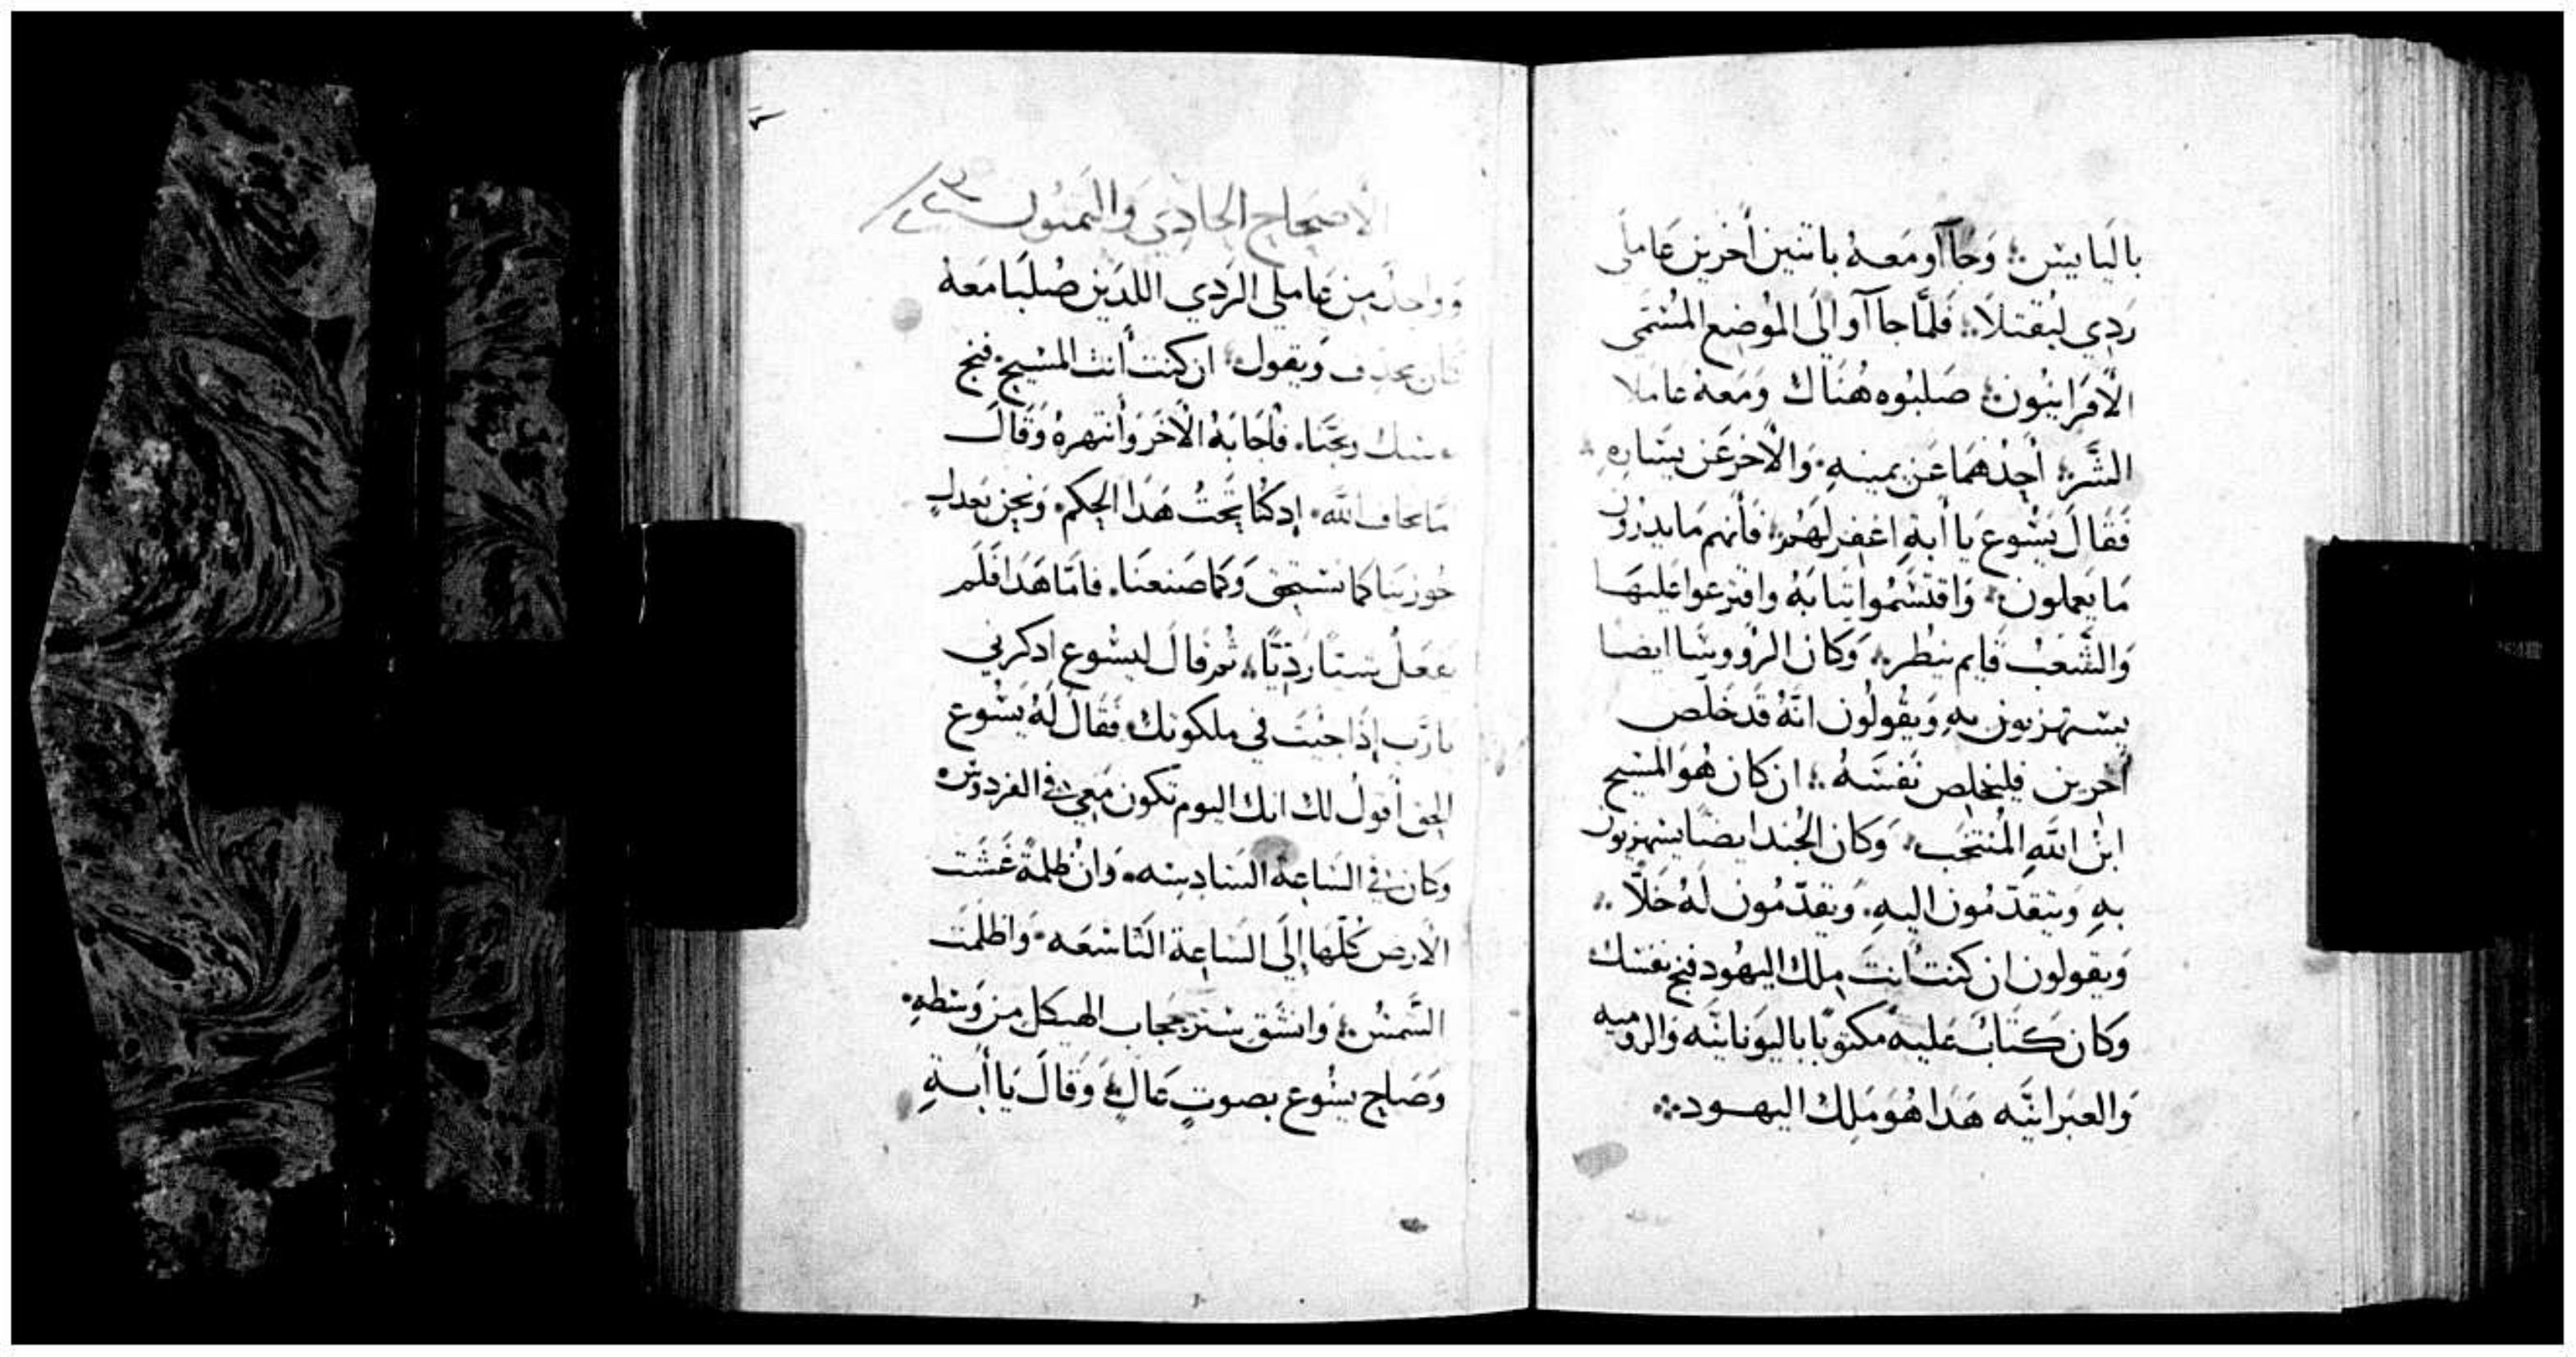 باليابيس؞ وَجَاآو مَعهُ باثنين أخرين عَاملَى
رَدِي ليُقتلَا؞ فَلمَّا جاآو الَى الموُضع المُسَمى
الأقرَانيُون؞ صَلبُوه هُنَاك وَمَعهُ عاملا
الشَّر؞ أحِدُهمَا عَن يمينهِ. وَالأخر عَن يسَارهِ
فَقَالَ يَسُوع يا أبهِ اغفر لهَمُ؞ فَأنهم مَا يدرُون
مَا يَعملون؞ وَاقتسَمُوا ثيابهُ واقترعوا عَليهَا
وَالشَّعبُ قَايم ينطر؞ وَكانَ الروُوسَا ايضا
يستهزيون بهِ وَيقُولُون انَّهُ قَد خَلّص
أخرين فليخلص نَفسَهُ؞ ان كانَ هُوَ المسَيح
ابنُ اللَّهِ المُنتخَب؞ وَكانَ الجُند ايضًا يستهزيون
بهِ وَيتقدّمُون اليهِ. وَيقدّمُون لهُ خَلّا؞
وَيقولون ان كنت أنتَ ملك اليهُود فنج نفسَك
وَكان كتَابَ عَليه مكتوبًا باليوَنانيَّه وَالروميه
وَالعبَرانيَّه هَدا هُوَ مَلِك اليهود؞
الأصحاح الحادي والتمنون
وَوَاحِدٌ مِن عَاملي الرَدِي اللدَين صُلبَا مَعهُ
كان يجدف وَيقول؞ ان كنت أنت المسَيح. فنج
نفسك ونجّنا. فأجَابَهُ الأخَر وَأنتهرهُ وَقَالَ
مَا تخاف اللَّه. إدكنا تَحتُ هَدَا الحكم. وَنحن بعَدلٍ
جُوزينَا كما نستحِق وَكما صَنعنَا. فامّا هَدَا فَلَم
يفعَلُ شيئًا رَدِيًا؞ ثمر قالَ ليسُوع ادكرني
يارَّب إذَا جيتَ في ملكوتك. فَقَالَ لَهُ يَسُوع
الحق أقولُ لك انك اليوم تكون مَعِي في الفردوس.
وَكان في السَاعِة السَادِسَه. وَانُ ظلمَةً غَشَت
الأرض كُلّهَا إلَى السَاعِة التَاسعَه. وَاظلمَت
الشَّمسُ؞ وَانشَق ستر حجَاب الهيكل من وَسَطهِ.
وَصَاح يسُوع بصوتٍ عَالٍ؞ وَقالَ يَا أبَهِ